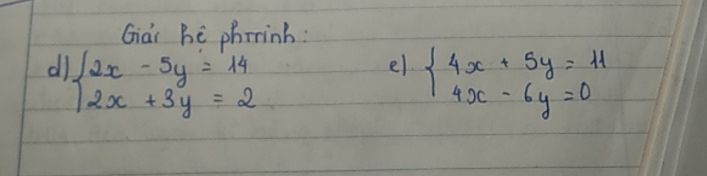 Giải hệ phtrình:
d) { 2x - 5y = 14
2x + 3y = 2
e) { 4x + 5y = 11
4x - 6y = 0